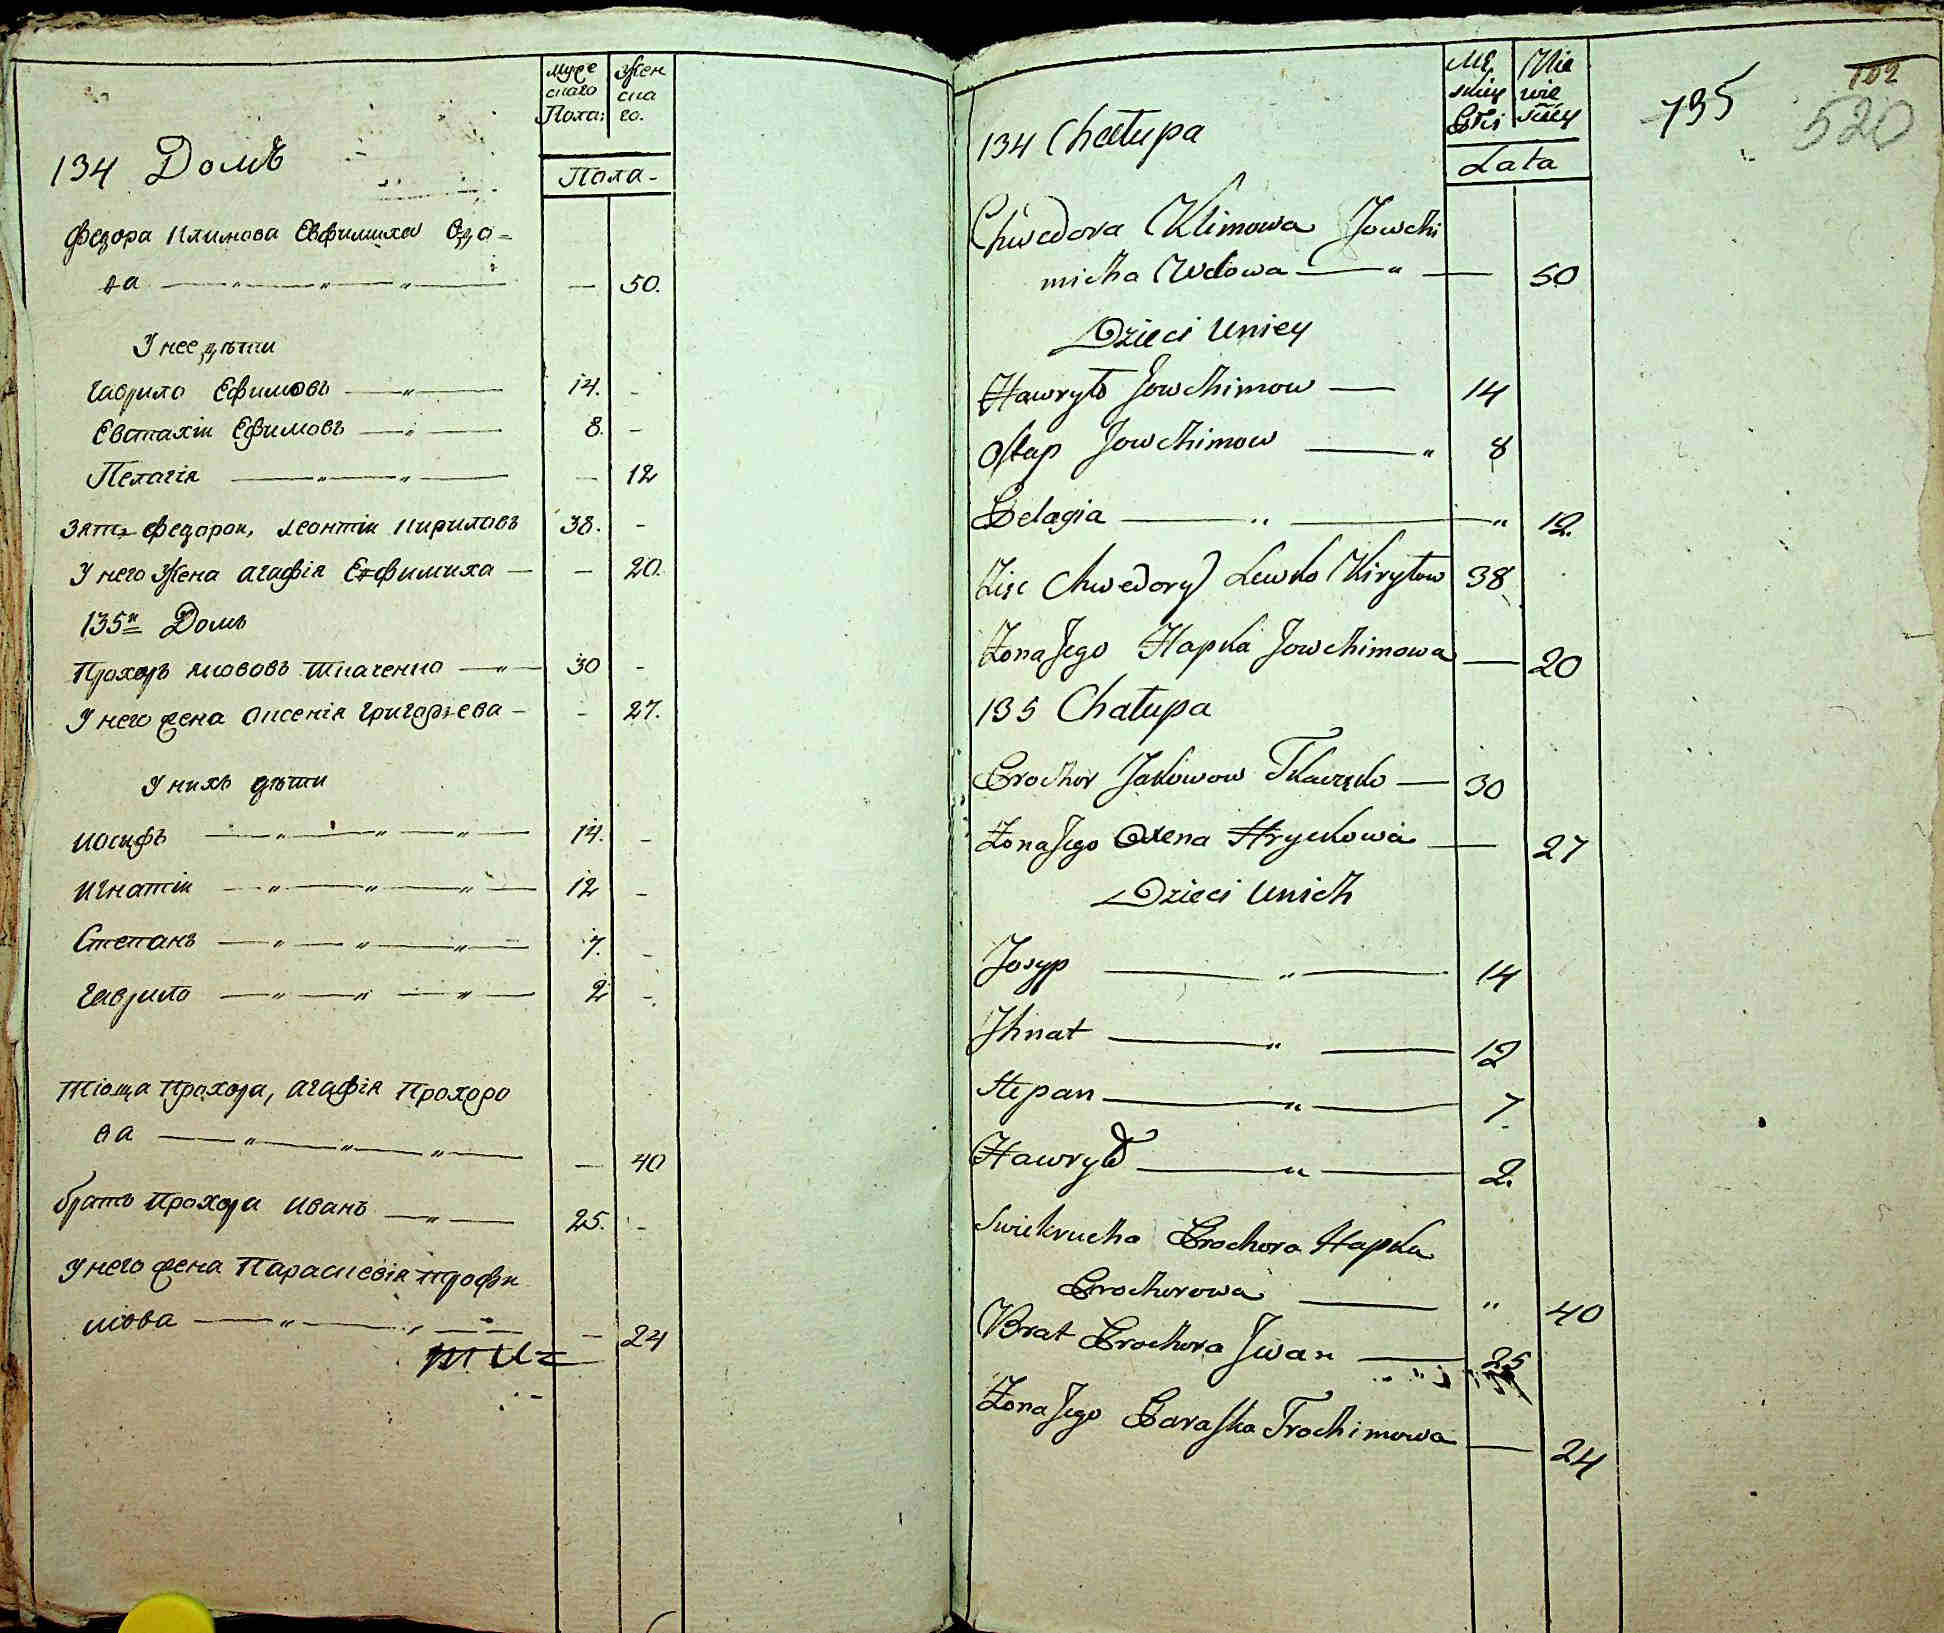 Мужескаго Пола:
Женскаго.
134 Домъ
Пола-
Федора Климова Евфимиха вдо=
ва — " — " — " — — 50.
У нее дѣти
Гаврило Ефимовъ — " — 14. -
Евстахій Ефимовъ — " — 8. -
Пелагія — " — " — — 12
Зять Федорки, Леонтій Кириловъ 38. -
У него Жена Агафія Евфимиха — — 20.
135й Домъ
Прохоръ Яковъ Ткаченко — " — 30 -
У него жена Аксенія Григорьева - - 27.
У нихъ дѣти
Иосифъ — " — " — " — 14. -
Игнатій — " — " — " — 12 -
Степанъ — " — " — " — 7. -
Гаврило — " — " — " — 2 -.
Тіоща Прохора, Агафія Прохоро
ва — " — " — " — — 40
братъ Прохора Иванъ — " — 25. -
У него жена Параскевія Трофи
мова — " — " — — 24
Mę skiey Płci
Nie wie sciey
134 Chałupa
Lata
Chwedora Klimowa Jowchi
micha Wdowa — " — 50
Dzieci Uniey
Hawryło Jowchimow — 14
Ostap Jowchimow — " 8
Pelagia — " — " 12.
Zięc Chwedory Lewko Kiryłow 38
Zona Jego Hapka Jowchimowa — 20
135 Chałupa
Prochor Jakowow Tkaczęko — 30
Zona Jego Oxena Hryckowa — 27
Dzieci Unich
Josyp — " — 14
Jhnat — " — 12
Stepan — " — 7.
Hawryło — " — 2.
Swiekrucha Prochora Hapka
Prochorowa — " 40
Brat Prochora Jwan — 25
Zona Jego Paraska Trochimowa — 24
135
102
520